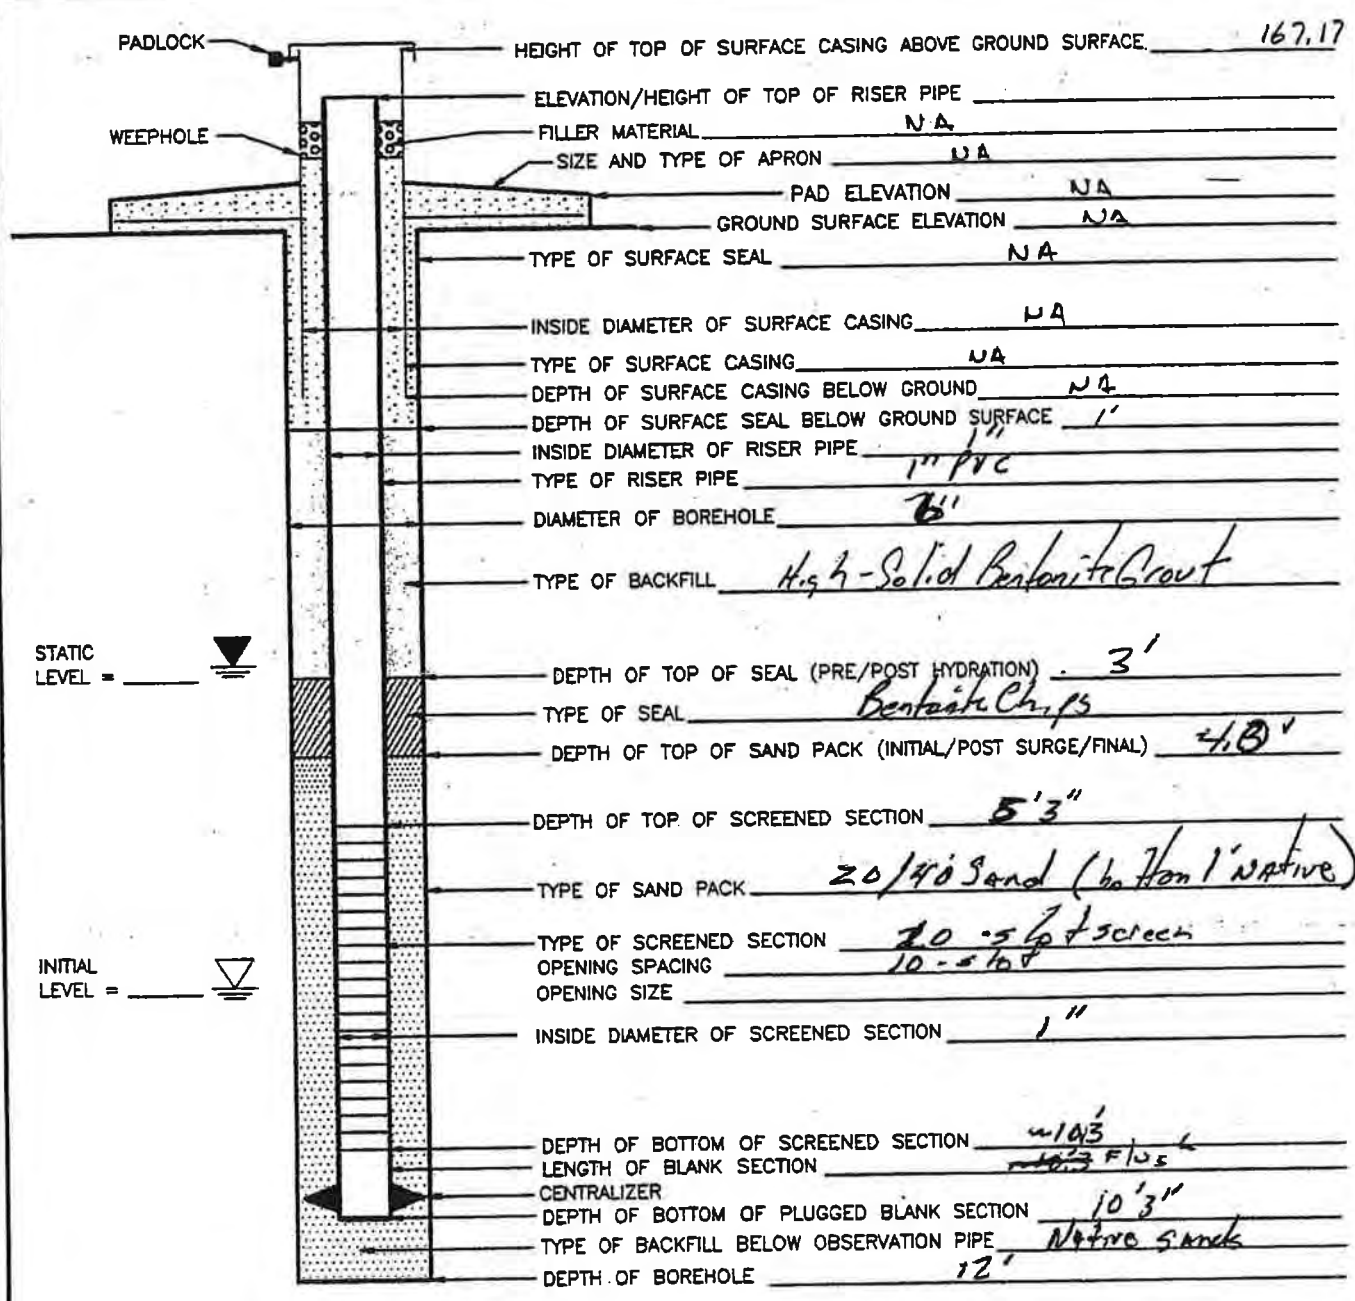 PADLOCK
HEIGHT OF TOP OF SURFACE CASING ABOVE GROUND SURFACE. 167.17
ELEVATION/HEIGHT OF TOP OF RISER PIPE
WEEPHOLE
FILLER MATERIAL NA
SIZE AND TYPE OF APRON NA
PAD ELEVATION NA —
GROUND SURFACE ELEVATION NA
TYPE OF SURFACE SEAL NA
INSIDE DIAMETER OF SURFACE CASING NA
TYPE OF SURFACE CASING NA
DEPTH OF SURFACE CASING BELOW GROUND NA
DEPTH OF SURFACE SEAL BELOW GROUND SURFACE 1'
INSIDE DIAMETER OF RISER PIPE 1"
TYPE OF RISER PIPE 1" PVC
DIAMETER OF BOREHOLE
TYPE OF BACKFILL High-Solid Bentonite Grout
STATIC
LEVEL =
DEPTH OF TOP OF SEAL (PRE/POST HYDRATION) 3'
TYPE OF SEAL Bentonite Chips
DEPTH OF TOP OF SAND PACK (INITIAL/POST SURGE/FINAL)
DEPTH OF TOP OF SCREENED SECTION 5'3"
TYPE OF SAND PACK 20/40 Sand (bottom 1' Native)
TYPE OF SCREENED SECTION 10-slot screen
OPENING SPACING 10-slot
INITIAL
LEVEL =
OPENING SIZE
INSIDE DIAMETER OF SCREENED SECTION 1"
DEPTH OF BOTTOM OF SCREENED SECTION
LENGTH OF BLANK SECTION Flush
CENTRALIZER
DEPTH OF BOTTOM OF PLUGGED BLANK SECTION 10'3"
TYPE OF BACKFILL BELOW OBSERVATION PIPE Native Sands
DEPTH OF BOREHOLE 12'